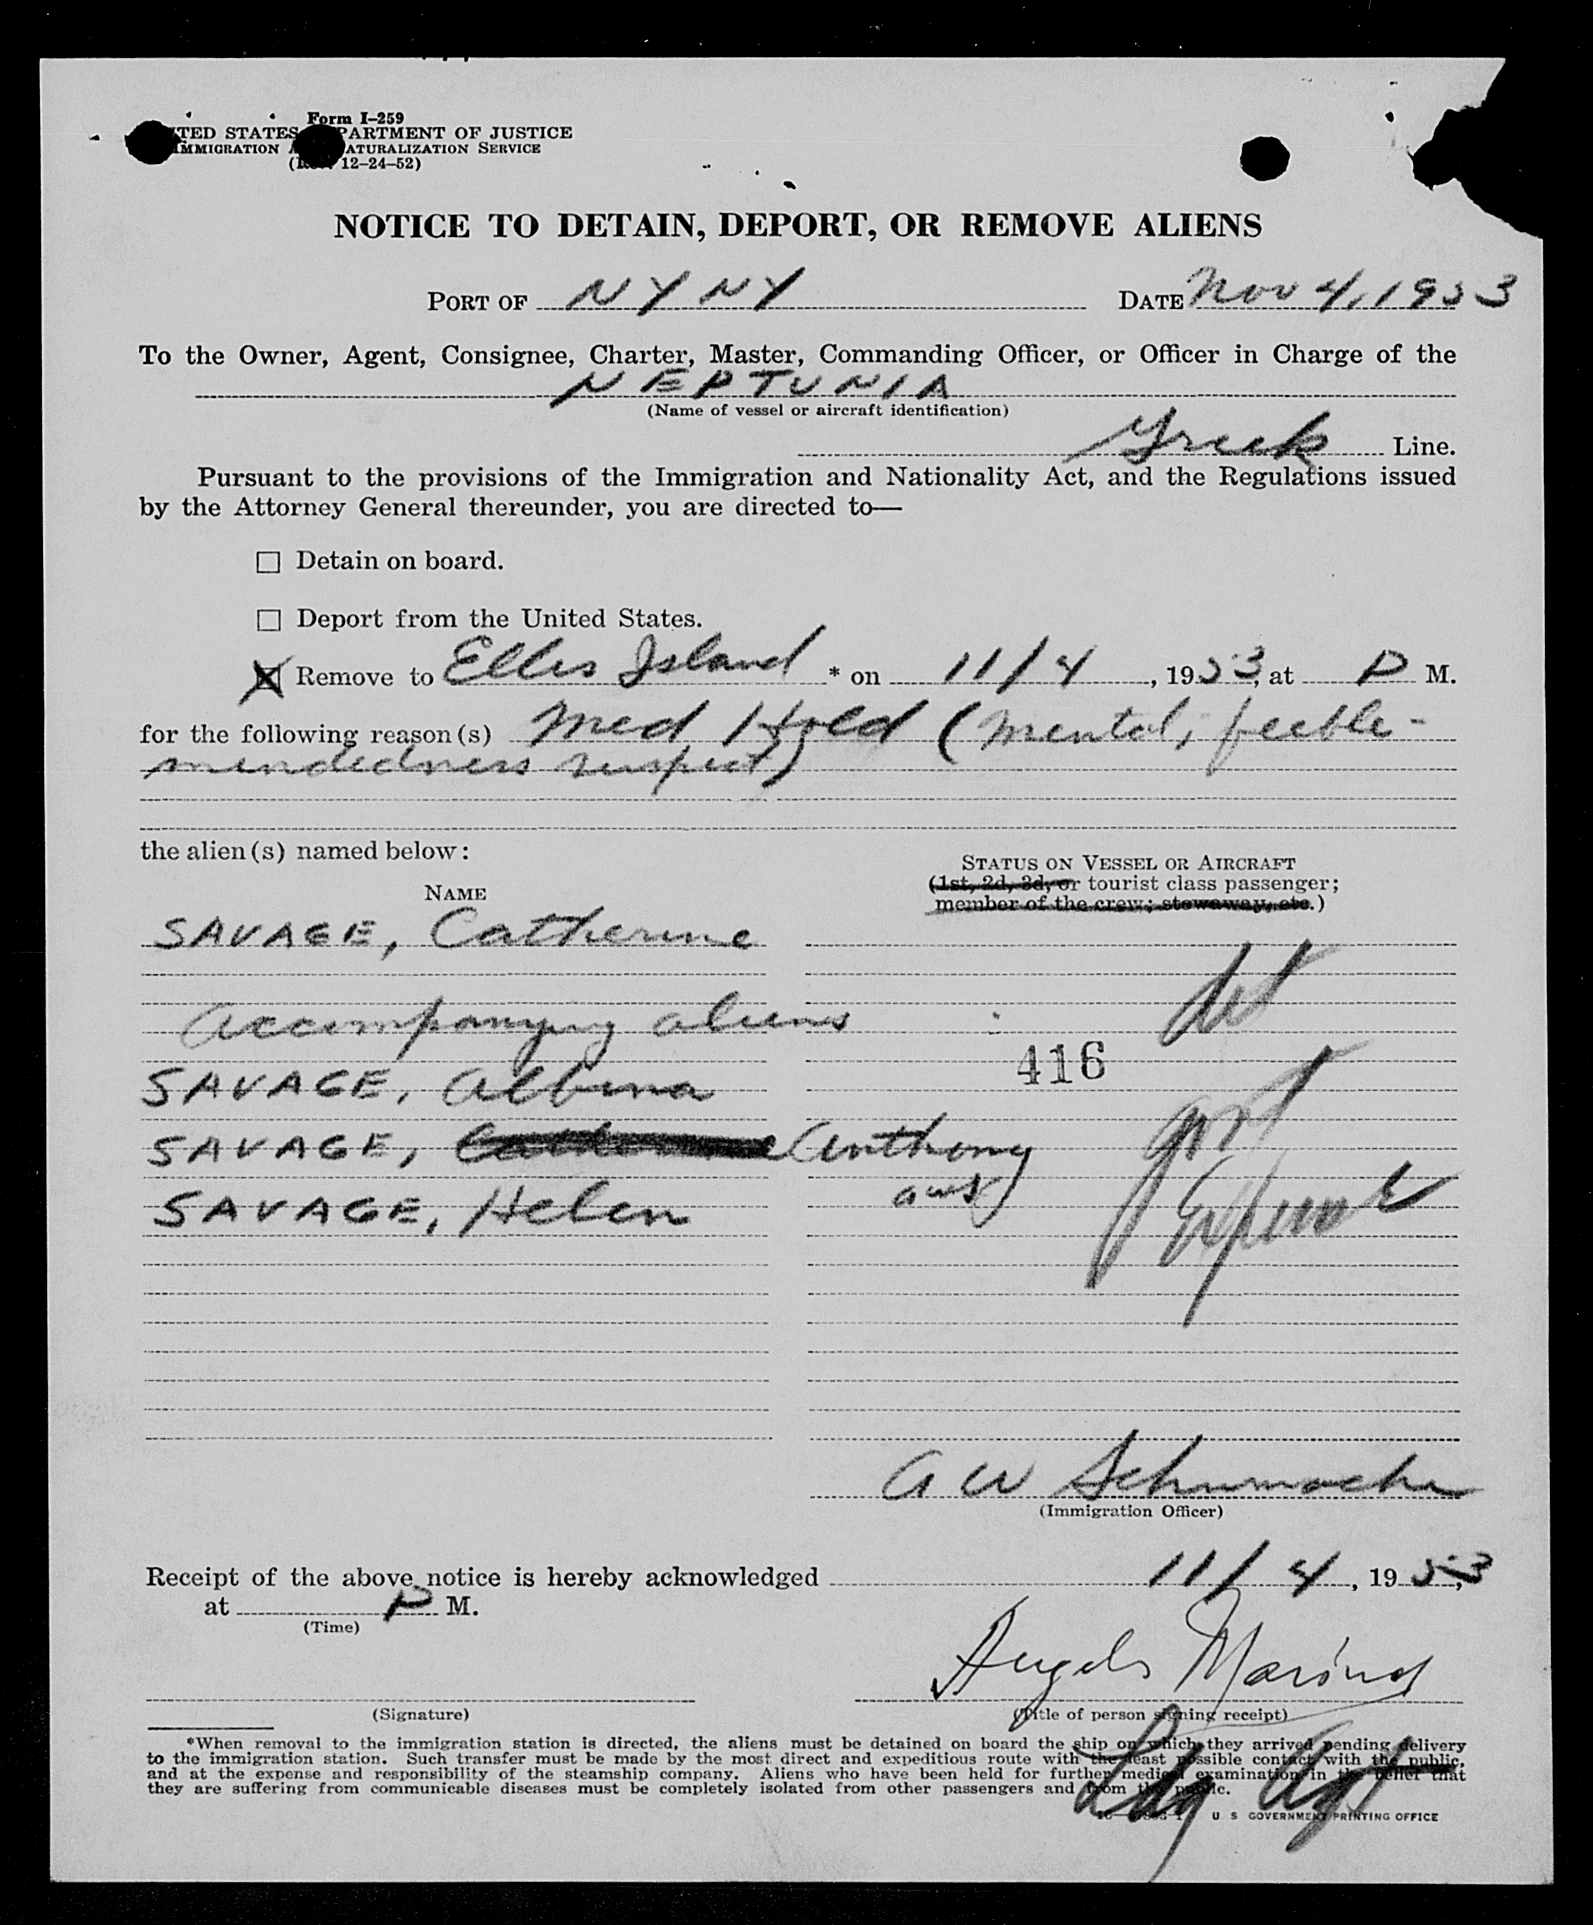 Form I-259
TED STATES PARTMENT OF JUSTICE
IMMIGRATION ATURALIZATION SERVICE
12-24-52)
NOTICE TO DETAIN, DEPORT, OR REMOVE ALIENS
PORT OF NY NY DATE Nov 4, 1953
To the Owner, Agent, Consignee, Charter, Master, Commanding Officer, or Officer in Charge of the
NEPTUNIA
(Name of vessel or aircraft identification)
Greek Line.
Pursuant to the provisions of the Immigration and Nationality Act, and the Regulations issued
by the Attorney General thereunder, you are directed to—
☐ Detain on board.
☐ Deport from the United States.
☒ Remove to Ellis Island * on 11/4, 1953, at P M.
for the following reason(s) Med Hold (mental, feeble-
mindedness suspect)
the alien(s) named below:
STATUS ON VESSEL OR AIRCRAFT
(1st, 2d, 3d, or tourist class passenger;
member of the crew; stowaway, etc.)
NAME
SAVAGE, Catherine
det
Accompanying aliens
416
SAVAGE, Albina
govt
SAVAGE, Catherine Anthony
aws
Expense
SAVAGE, Helen
A W Schumacher
(Immigration Officer)
Receipt of the above notice is hereby acknowledged 11/4, 1953,
at P M.
(Time)
Angelo
(Signature)
(Title of person signing receipt)
Ldg Agt
*When removal to the immigration station is directed, the aliens must be detained on board the ship on which they arrived pending delivery
to the immigration station. Such transfer must be made by the most direct and expeditious route with the least possible contact with the public,
and at the expense and responsibility of the steamship company. Aliens who have been held for further medical examination in the belief that
they are suffering from communicable diseases must be completely isolated from other passengers and from the public.
U S GOVERNMENT PRINTING OFFICE